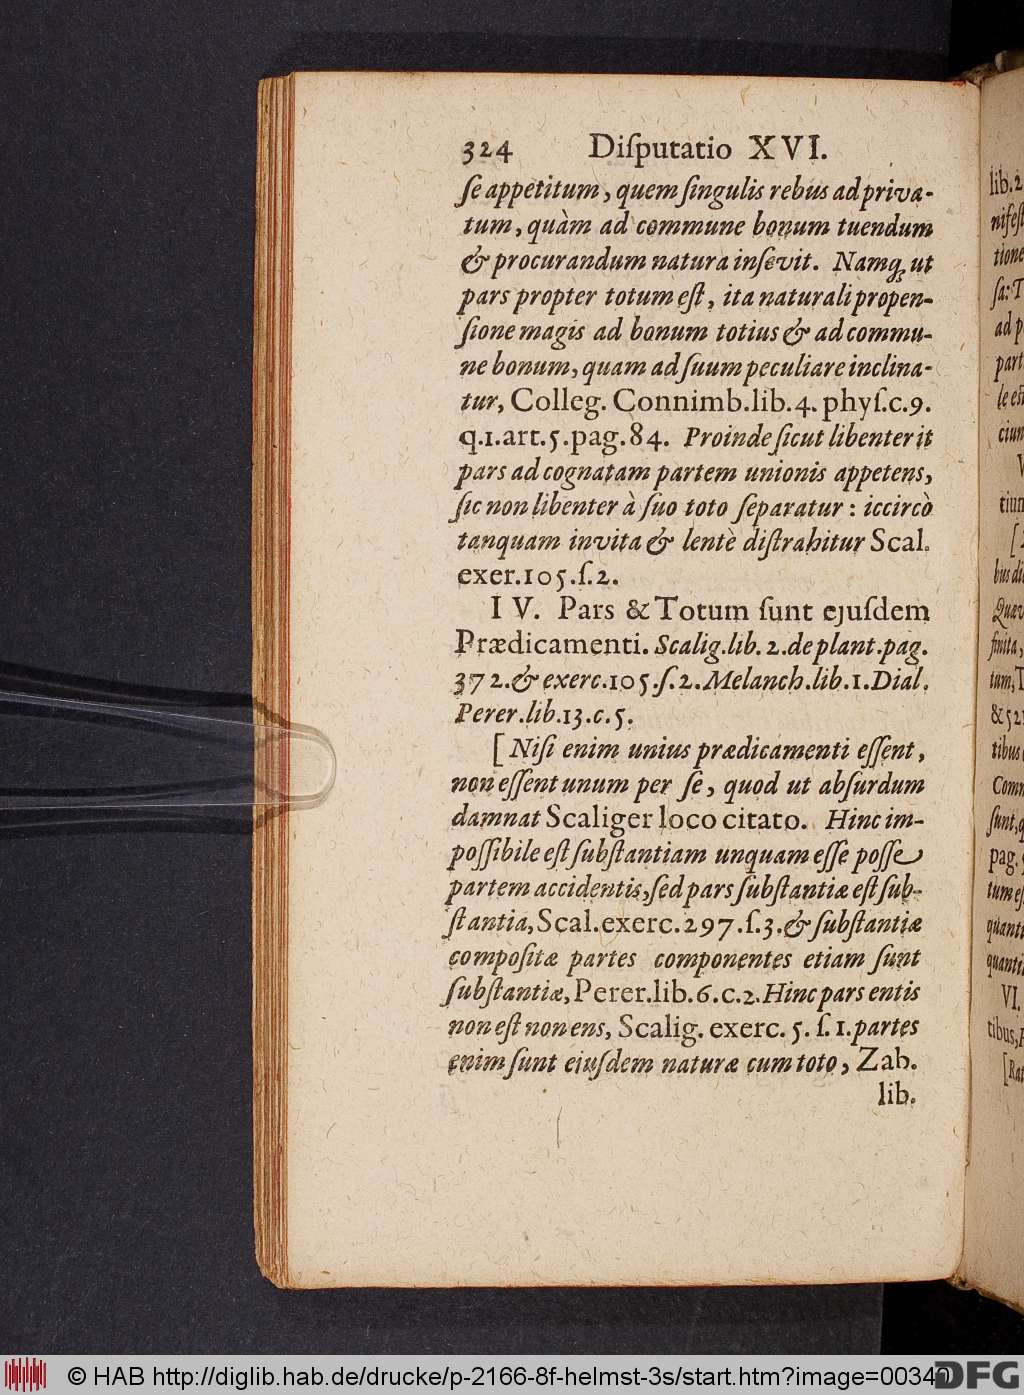 324 Diſputatio XVI.
ſe appetitum, quem ſingulis rebus ad priva-
tum, quàm ad commune bonum tuendum
& procurandum natura inſevit. Namq; ut
pars propter totum eſt, ita naturali propen-
ſione magis ad bonum totius & ad commu-
ne bonum, quam ad ſuum peculiare inclina-
tur, Colleg. Connimb. lib. 4. phyſ. c. 9.
q. 1. art. 5. pag. 84. Proinde ſicut libenter it
pars ad cognatam partem unionis appetens,
ſic non libenter à ſuo toto ſeparatur : iccircò
tanquam invita & lentè diſtrahitur Scal.
exer. 105. ſ. 2.
IV. Pars & Totum ſunt ejuſdem
Prædicamenti. Scalig. lib. 2. de plant. pag.
372. & exerc. 105. ſ. 2. Melanch. lib. 1. Dial.
Perer. lib. 13. c. 5.
[ Niſi enim unius prædicamenti eſſent,
non eſſent unum per ſe, quod ut abſurdum
damnat Scaliger loco citato. Hinc im-
poſſibile eſt ſubſtantiam unquam eſſe poſſe
partem accidentis, ſed pars ſubſtantiæ eſt ſub-
ſtantia, Scal. exerc. 297. ſ. 3. & ſubſtantiæ
compoſitæ partes componentes etiam ſunt
ſubſtantiæ, Perer. lib. 6. c. 2. Hinc pars entis
non eſt non ens, Scalig. exerc. 5. ſ. 1. partes
enim ſunt eiuſdem naturæ cum toto, Zab.
lib.
© HAB http://diglib.hab.de/drucke/p-2166-8f-helmst-3s/start.htm?image=00340
DFG